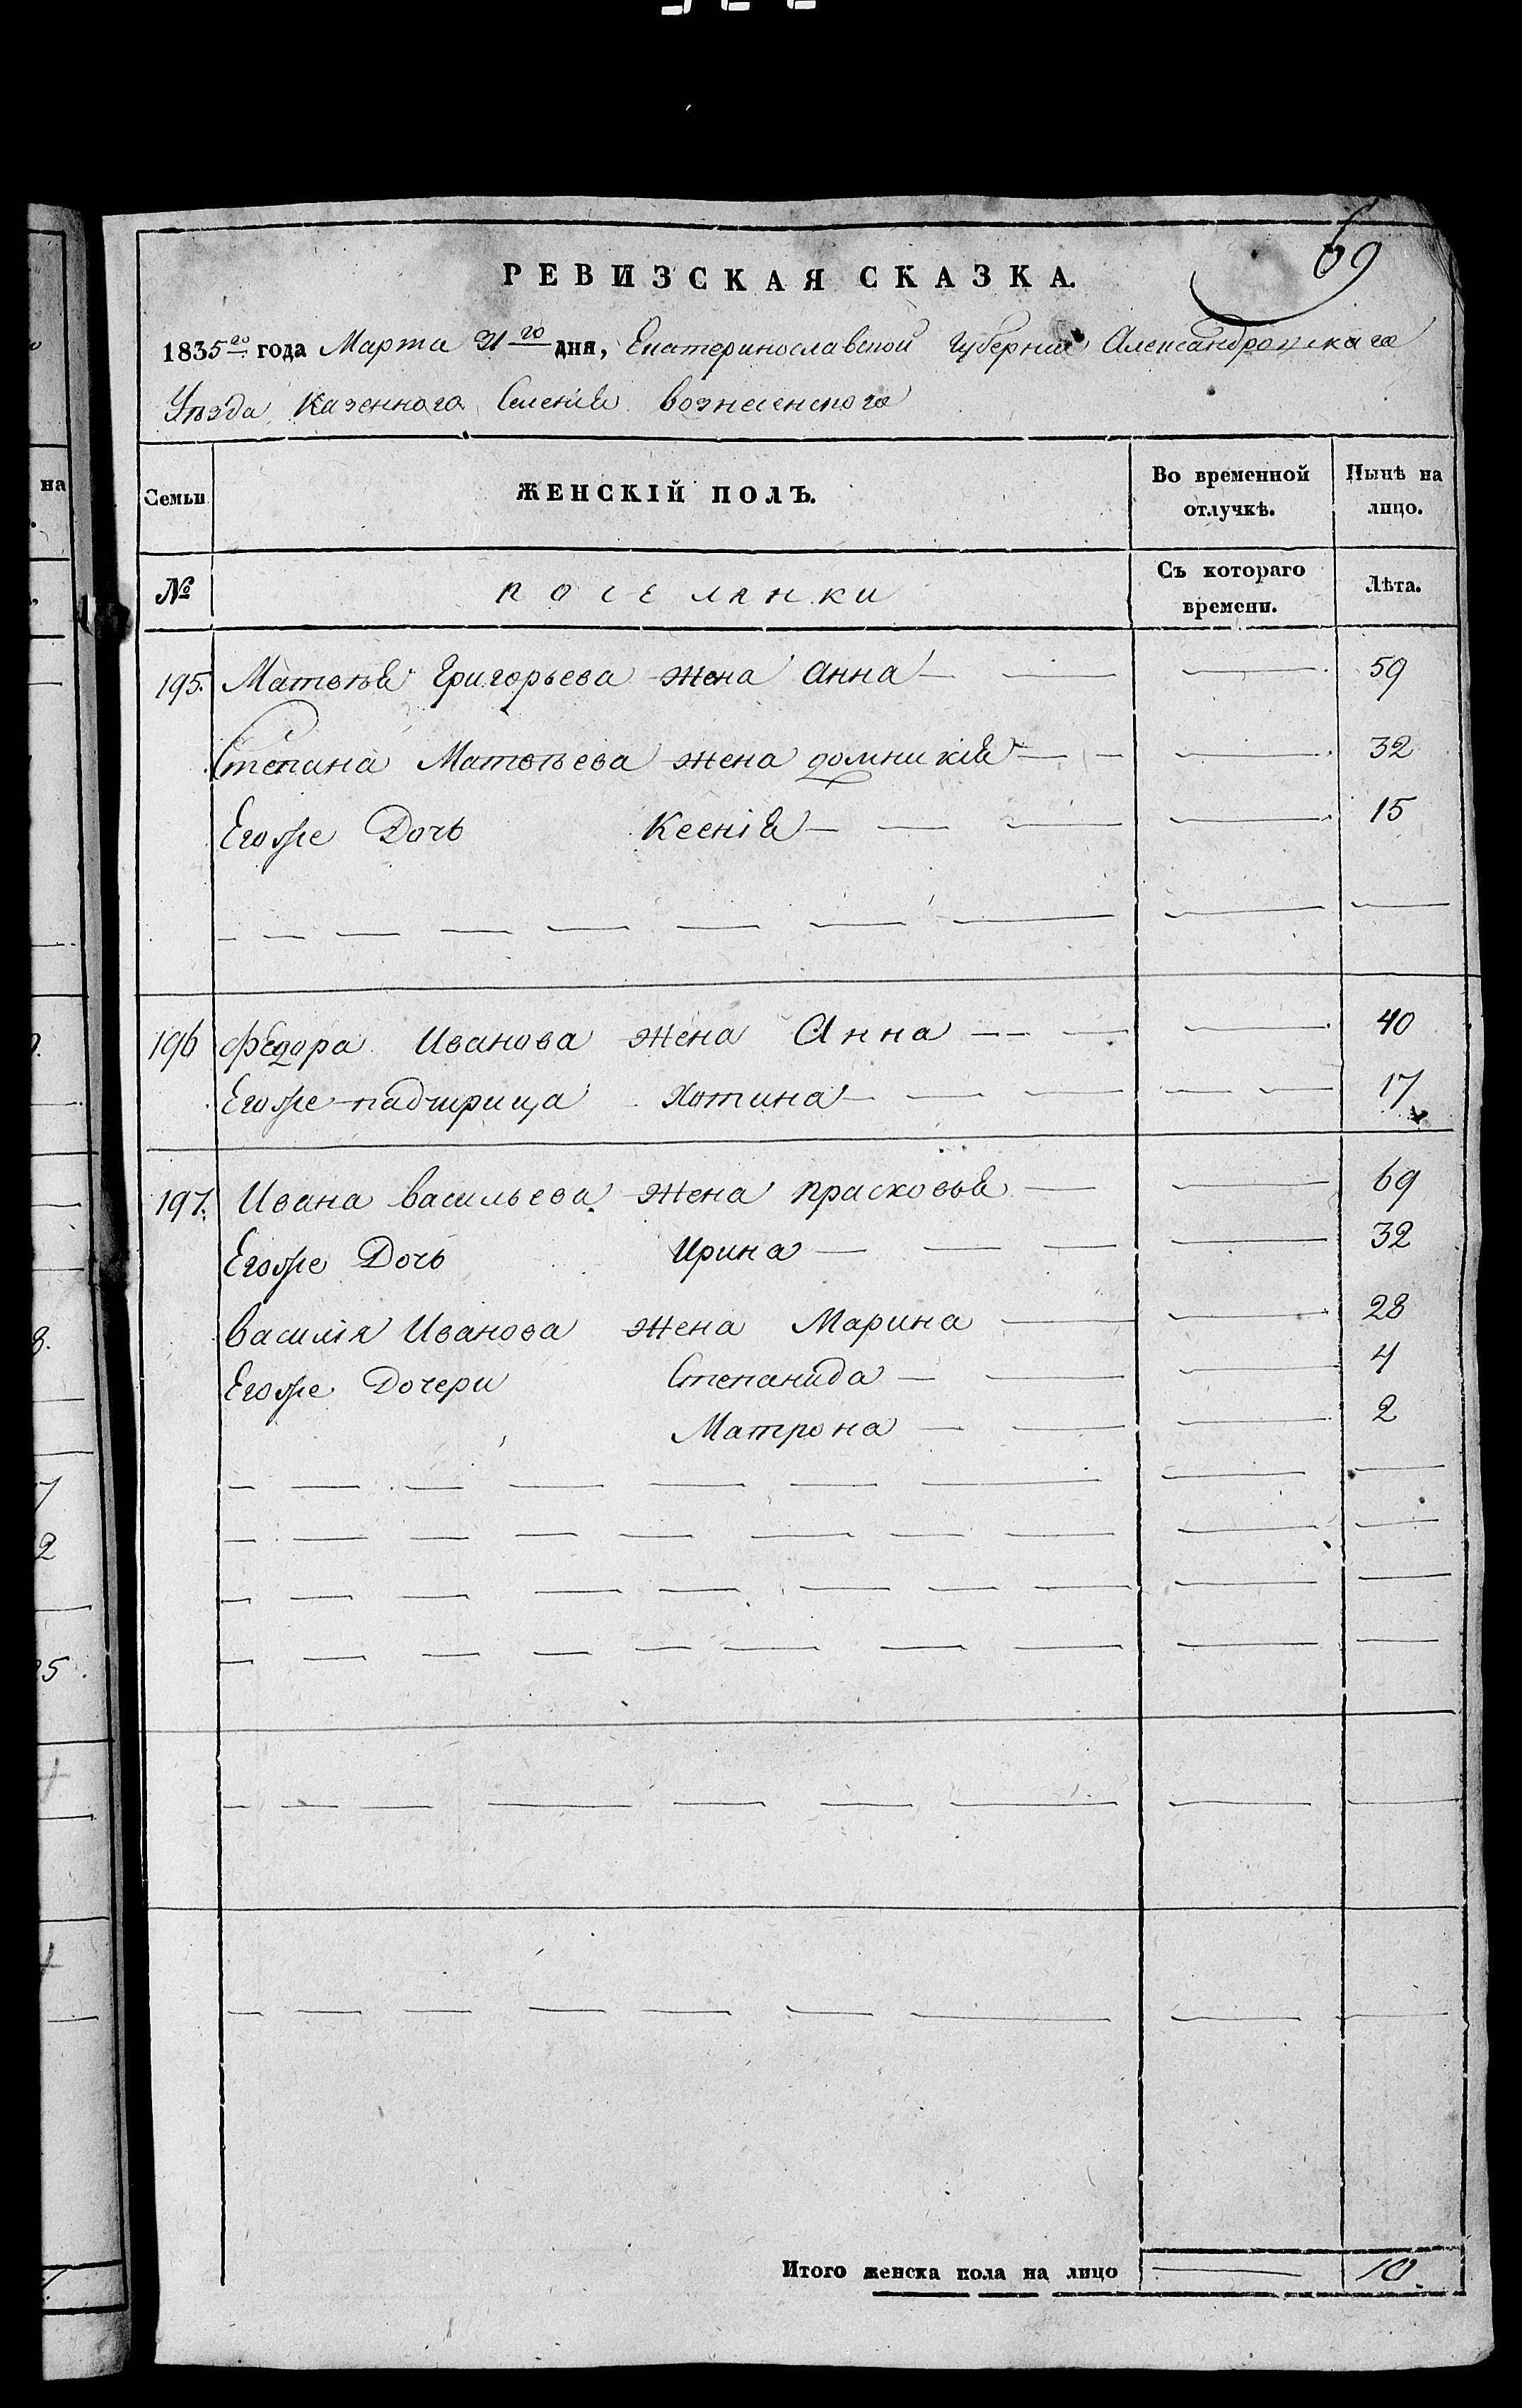 69
РЕВИЗСКАЯ СКАЗКА.
1835го года Марта 31го дня, Екатеринославской Губернии Александровскаго
Уѣзда Казенного Селенія Вознесенского
Семьи ЖЕНСКІЙ ПОЛЪ. Во временной отлучкѣ. Нынѣ на лицо.
№ поселянки Съ котораго времени. Лѣта.
195. Матвѣя Григорьева жена Анна 59
Степана Матвѣева жена домникія 32
Егоже Дочь Ксенія 15
196 Федора Иванова жена Анна 40
Егоже падчирица Хотина 17
197. Ивана Васильева жена прасковья 69
Егоже Дочь Ирина 32
Василія Иванова жена Марина 28
Егоже Дочери Степанида 4
Матрона 2
Итого женска пола на лицо 10
на
8.
7
2
25.